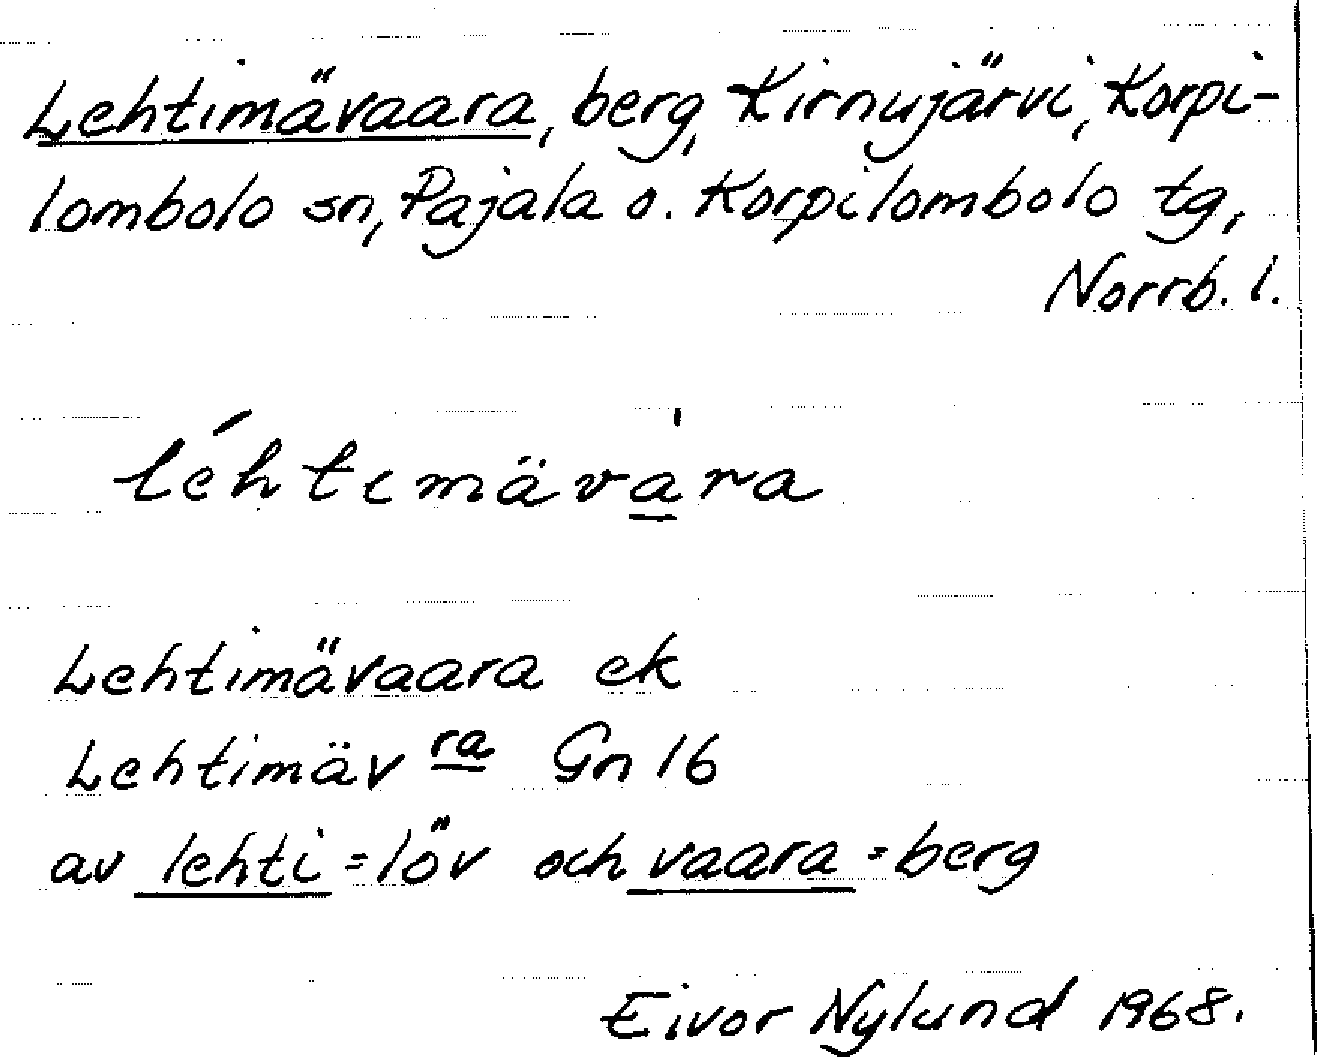 Lehtimävaara, berg, Kirnujärvi, Korpi-
lombolo sn, Pajala o. Korpilombolo tg,
Norrb. l.
léhtimävàra
Lehtimävaara ek
Lehtimäv ra Gn 16
av lehti = löv och vaara = berg
Eivor Nylund 1968.